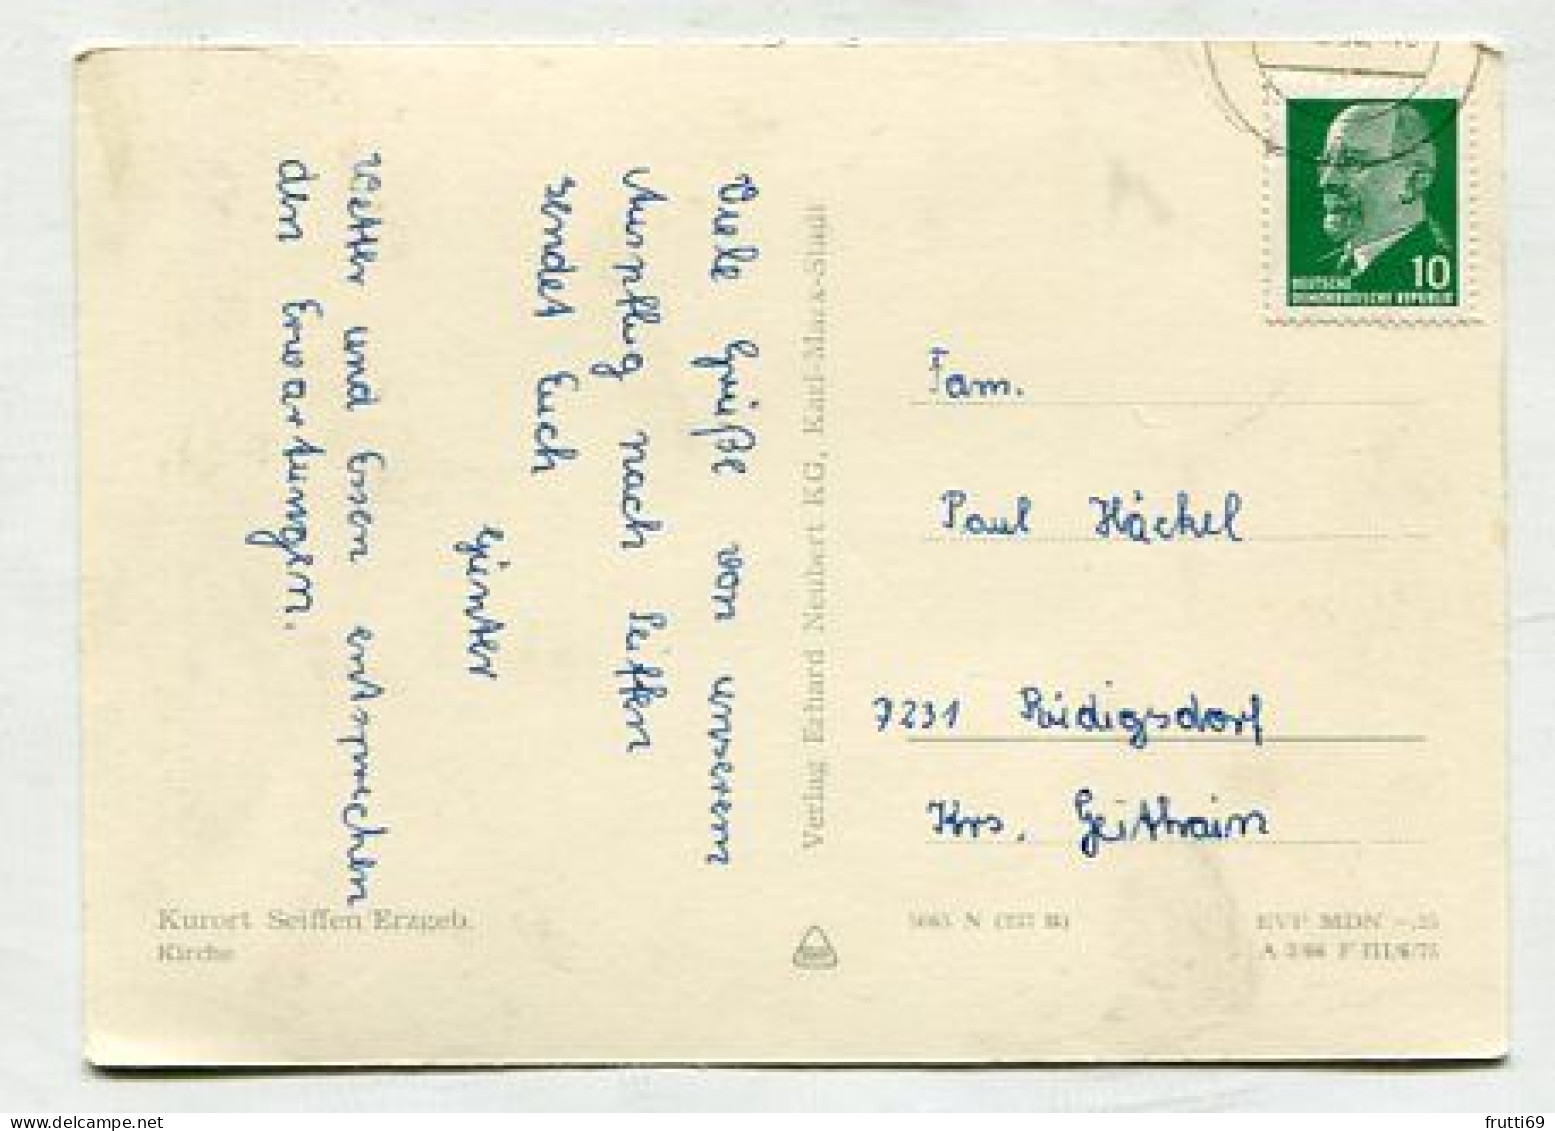 Viele Grüße von unserem
Ausflug nach Seiffen
sendet Euch
Günter
Wetter und Essen entsprechen
den Erwartungen.
Kurort Seiffen/Erzgeb.
Kirche
Verlag Erhard Neubert KG, Karl-Marx-Stadt
DEUTSCHE
DEMOKRATISCHE REPUBLIK
10
Fam.
Paul Häckel
7231 Rüdigsdorf
Krs. Geithain
EVP MDN -.25
frutti69